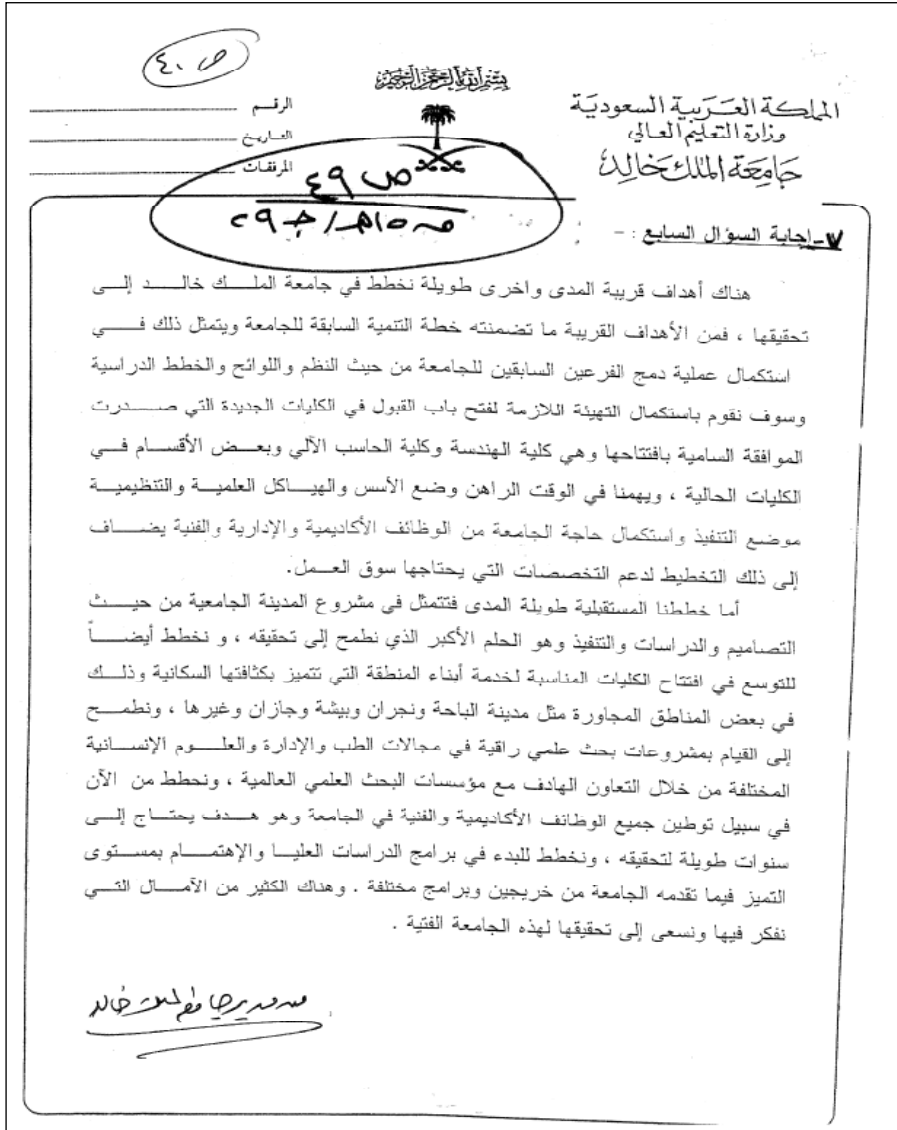 ص ٤٠
بسم الله الرحمن الرحيم
المملكة العربية السعودية
وزارة التعليم العالي
جامعة الملك خالد
الرقم
التاريخ
المرفقات
ص ٤٩
٧- إجابة السؤال السابع : -
هناك أهداف قريبة المدى واخرى طويلة نخطط في جامعة الملك خالد إلى
تحقيقها ، فمن الأهداف القريبة ما تضمنته خطة التنمية السابقة للجامعة ويتمثل ذلك في
استكمال عملية دمج الفرعين السابقين للجامعة من حيث النظم واللوائح والخطط الدراسية
وسوف نقوم باستكمال التهيئة اللازمة لفتح باب القبول في الكليات الجديدة التي صدرت
الموافقة السامية بافتتاحها وهي كلية الهندسة وكلية الحاسب الآلي وبعض الأقسام في
الكليات الحالية ، ويهمنا في الوقت الراهن وضع الأسس والهياكل العلمية والتنظيمية
موضع التنفيذ واستكمال حاجة الجامعة من الوظائف الأكاديمية والإدارية والفنية يضاف
إلى ذلك التخطيط لدعم التخصصات التي يحتاجها سوق العمل.
أما خططنا المستقبلية طويلة المدى فتتمثل في مشروع المدينة الجامعية من حيث
التصاميم والدراسات والتنفيذ وهو الحلم الأكبر الذي نطمح إلى تحقيقه ، و نخطط أيضاً
للتوسع في افتتاح الكليات المناسبة لخدمة أبناء المنطقة التي تتميز بكثافتها السكانية وذلك
في بعض المناطق المجاورة مثل مدينة الباحة ونجران وبيشة وجازان وغيرها ، ونطمح
إلى القيام بمشروعات بحث علمي راقية في مجالات الطب والإدارة والعلوم الإنسانية
المختلفة من خلال التعاون الهادف مع مؤسسات البحث العلمي العالمية ، ونحطط من الآن
في سبيل توطين جميع الوظائف الأكاديمية والفنية في الجامعة وهو هدف يحتاج إلى
سنوات طويلة لتحقيقه ، ونخطط للبدء في برامج الدراسات العليا والإهتمام بمستوى
التميز فيما تقدمه الجامعة من خريجين وبرامج مختلفة . وهناك الكثير من الآمال التي
نفكر فيها ونسعى إلى تحقيقها لهذه الجامعة الفتية .
من مدير جامعة الملك خالد